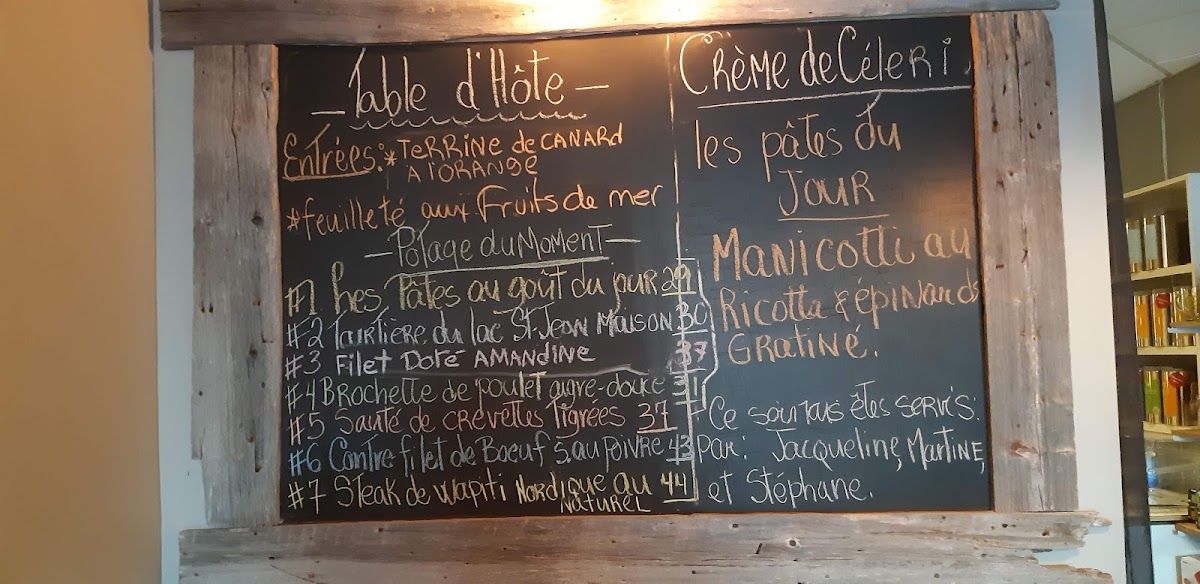 Table d'Hôte
Entrées: * Terrine de CANARD
A l'ORANGE
* feuilleté aux Fruits de mer
Potage du Moment
#1 Les Pâtes au goût du jour 29
#2 Tourtière du lac St-Jean MAISON 30
#3 Filet Doré AMANDINE 37
#4 Brochette de poulet aigre-douce 31
#5 Sauté de crevettes Tigrées 37
#6 Contre filet de Boeuf 5 au POIVRE 43
#7 Steak de Wapiti Nordique au 44
NATUREL
Crème de Céleri
les pâtes du
JOUR
Manicotti au
Ricotta & épinards
GRATINÉ.
Ce soir vous êtes servis:
Par: Jacqueline, Martine,
et Stéphane.